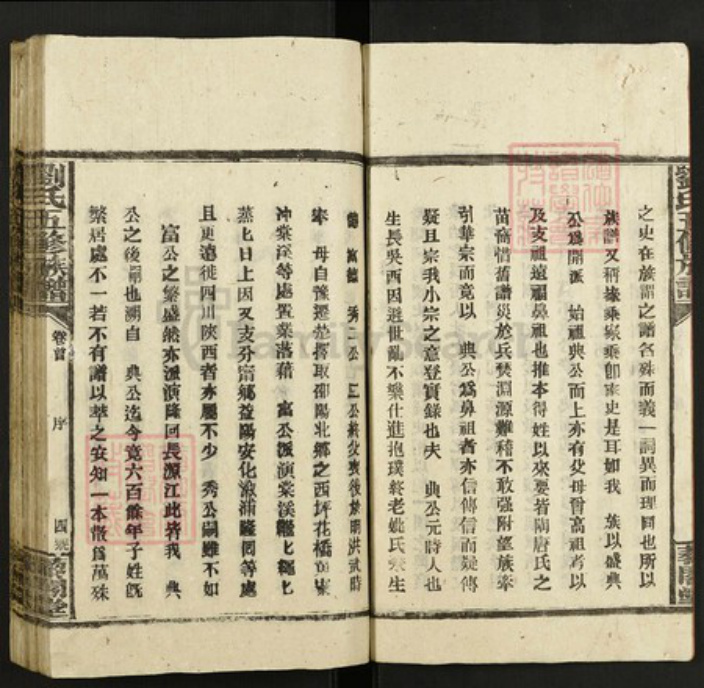 之史在族謂之譜名殊而義一詞異而理同也所以
族譜又稱族乘家乘卽家史是耳如我 族以盛典
公爲開派 始祖典公而上亦有父母曾高祖考以
及支祖遠祖鼻祖也推本得姓以來要皆陶唐氏之
苗裔惜舊譜災於兵燹淵源難稽不敢强附望族牽
引華宗而竟以 典公爲鼻祖者亦信傳信而疑傳
疑且宗我小宗之意登實錄也夫 典公元時人也
生長吳西因避世亂不樂仕進抱璞終老妣氏 生
德 富德 秀 公 三公於父歿後於明洪武時
奉 母自豫遷楚擇取邵陽北鄉之西坪花橋
冲棠溪等處置業落藉 富公派演棠溪 七
蒸七日上因又支分甯鄉益陽安化漵浦隆囘等處
且更遠徙四川陝西者亦屬不少 秀公嗣雖不如
富公之繁盛然亦派演隆囘長源江此皆我 典
公之後嗣也溯自 典公迄今竟六百餘年子姓旣
繁居處不一若不有譜以萃之安知一本散爲萬殊
劉氏五修族譜
卷首
序
四
藜閣堂
劉氏五修族譜
藜閣堂
FamilySearch